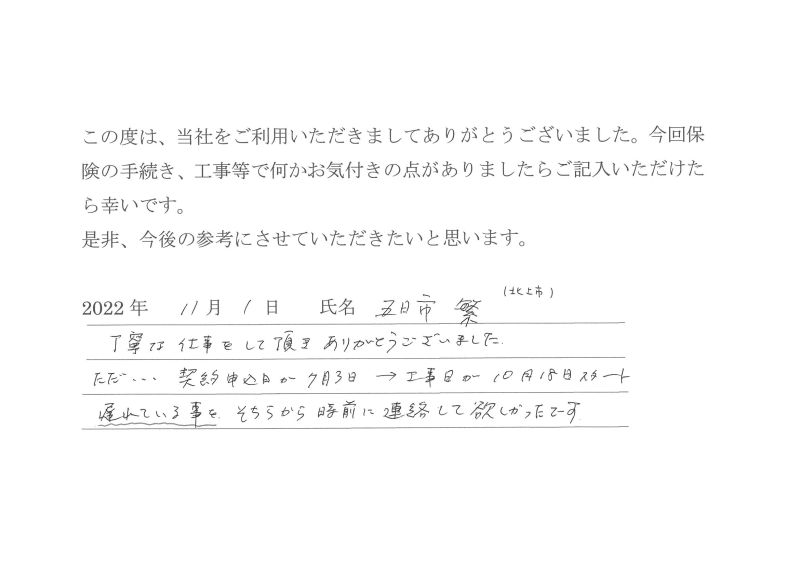 この度は、当社をご利用いただきましてありがとうございました。今回保
険の手続き、工事等で何かお気付きの点がありましたらご記入いただけた
ら幸いです。
是非、今後の参考にさせていただきたいと思います。
(北上市)
2022年 11月 1日 氏名 五日市 繁
丁寧な仕事をして頂きありがとうございました.
ただ・・・ 契約申込日が7月3日 → 工事日が10月18日スタート
遅れている事を、そちらから時前に連絡して欲しかったです